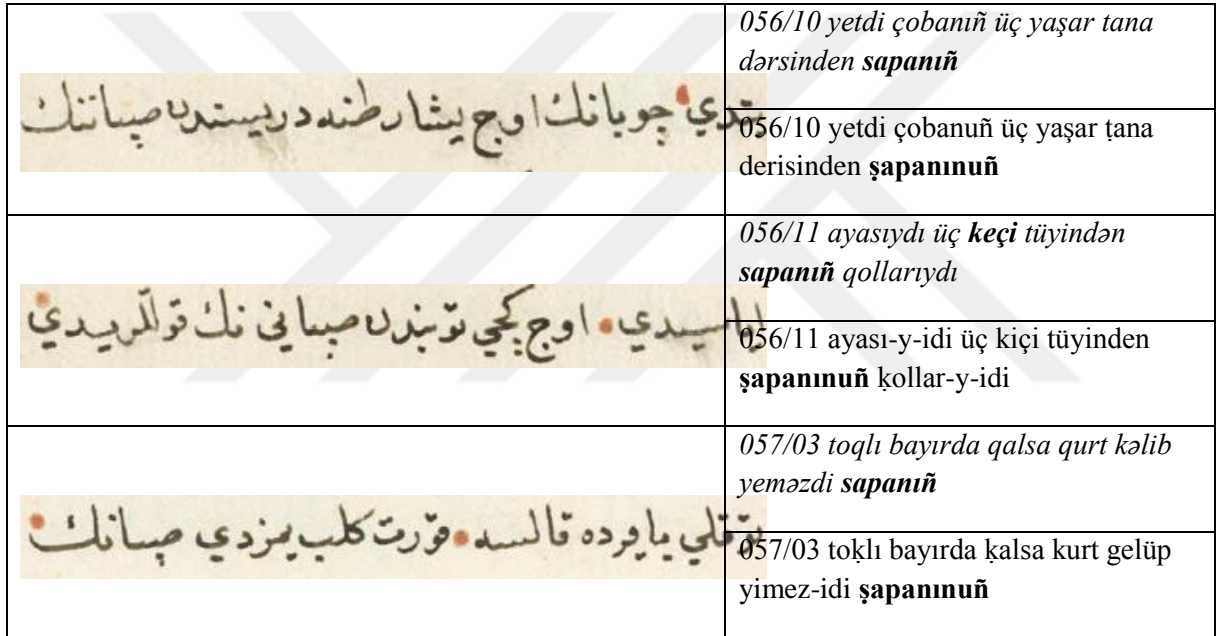 يتدي چوبانك اوچ يشار طنه دريسندن صپاننك
056/10 yetdi çobanıñ üç yaşar tana
dərsinden sapanıñ
056/10 yetdi çobanuñ üç yaşar ṭana
derisinden ṣapanınuñ
اياسيدي اوج كچي تويندن صپاني نك قوللريدي
056/11 ayasıydı üç keçi tüyindən
sapanıñ qollarıydı
056/11 ayası-y-idi üç kiçi tüyinden
ṣapanınuñ ḳollar-y-idi
توقلي بايرده قالسه قورت كلب يمزدي صپانك
057/03 toqlı bayırda qalsa qurt kəlib
yeməzdi sapanıñ
057/03 toḳlı bayırda ḳalsa kurt gelüp
yimez-idi ṣapanınuñ